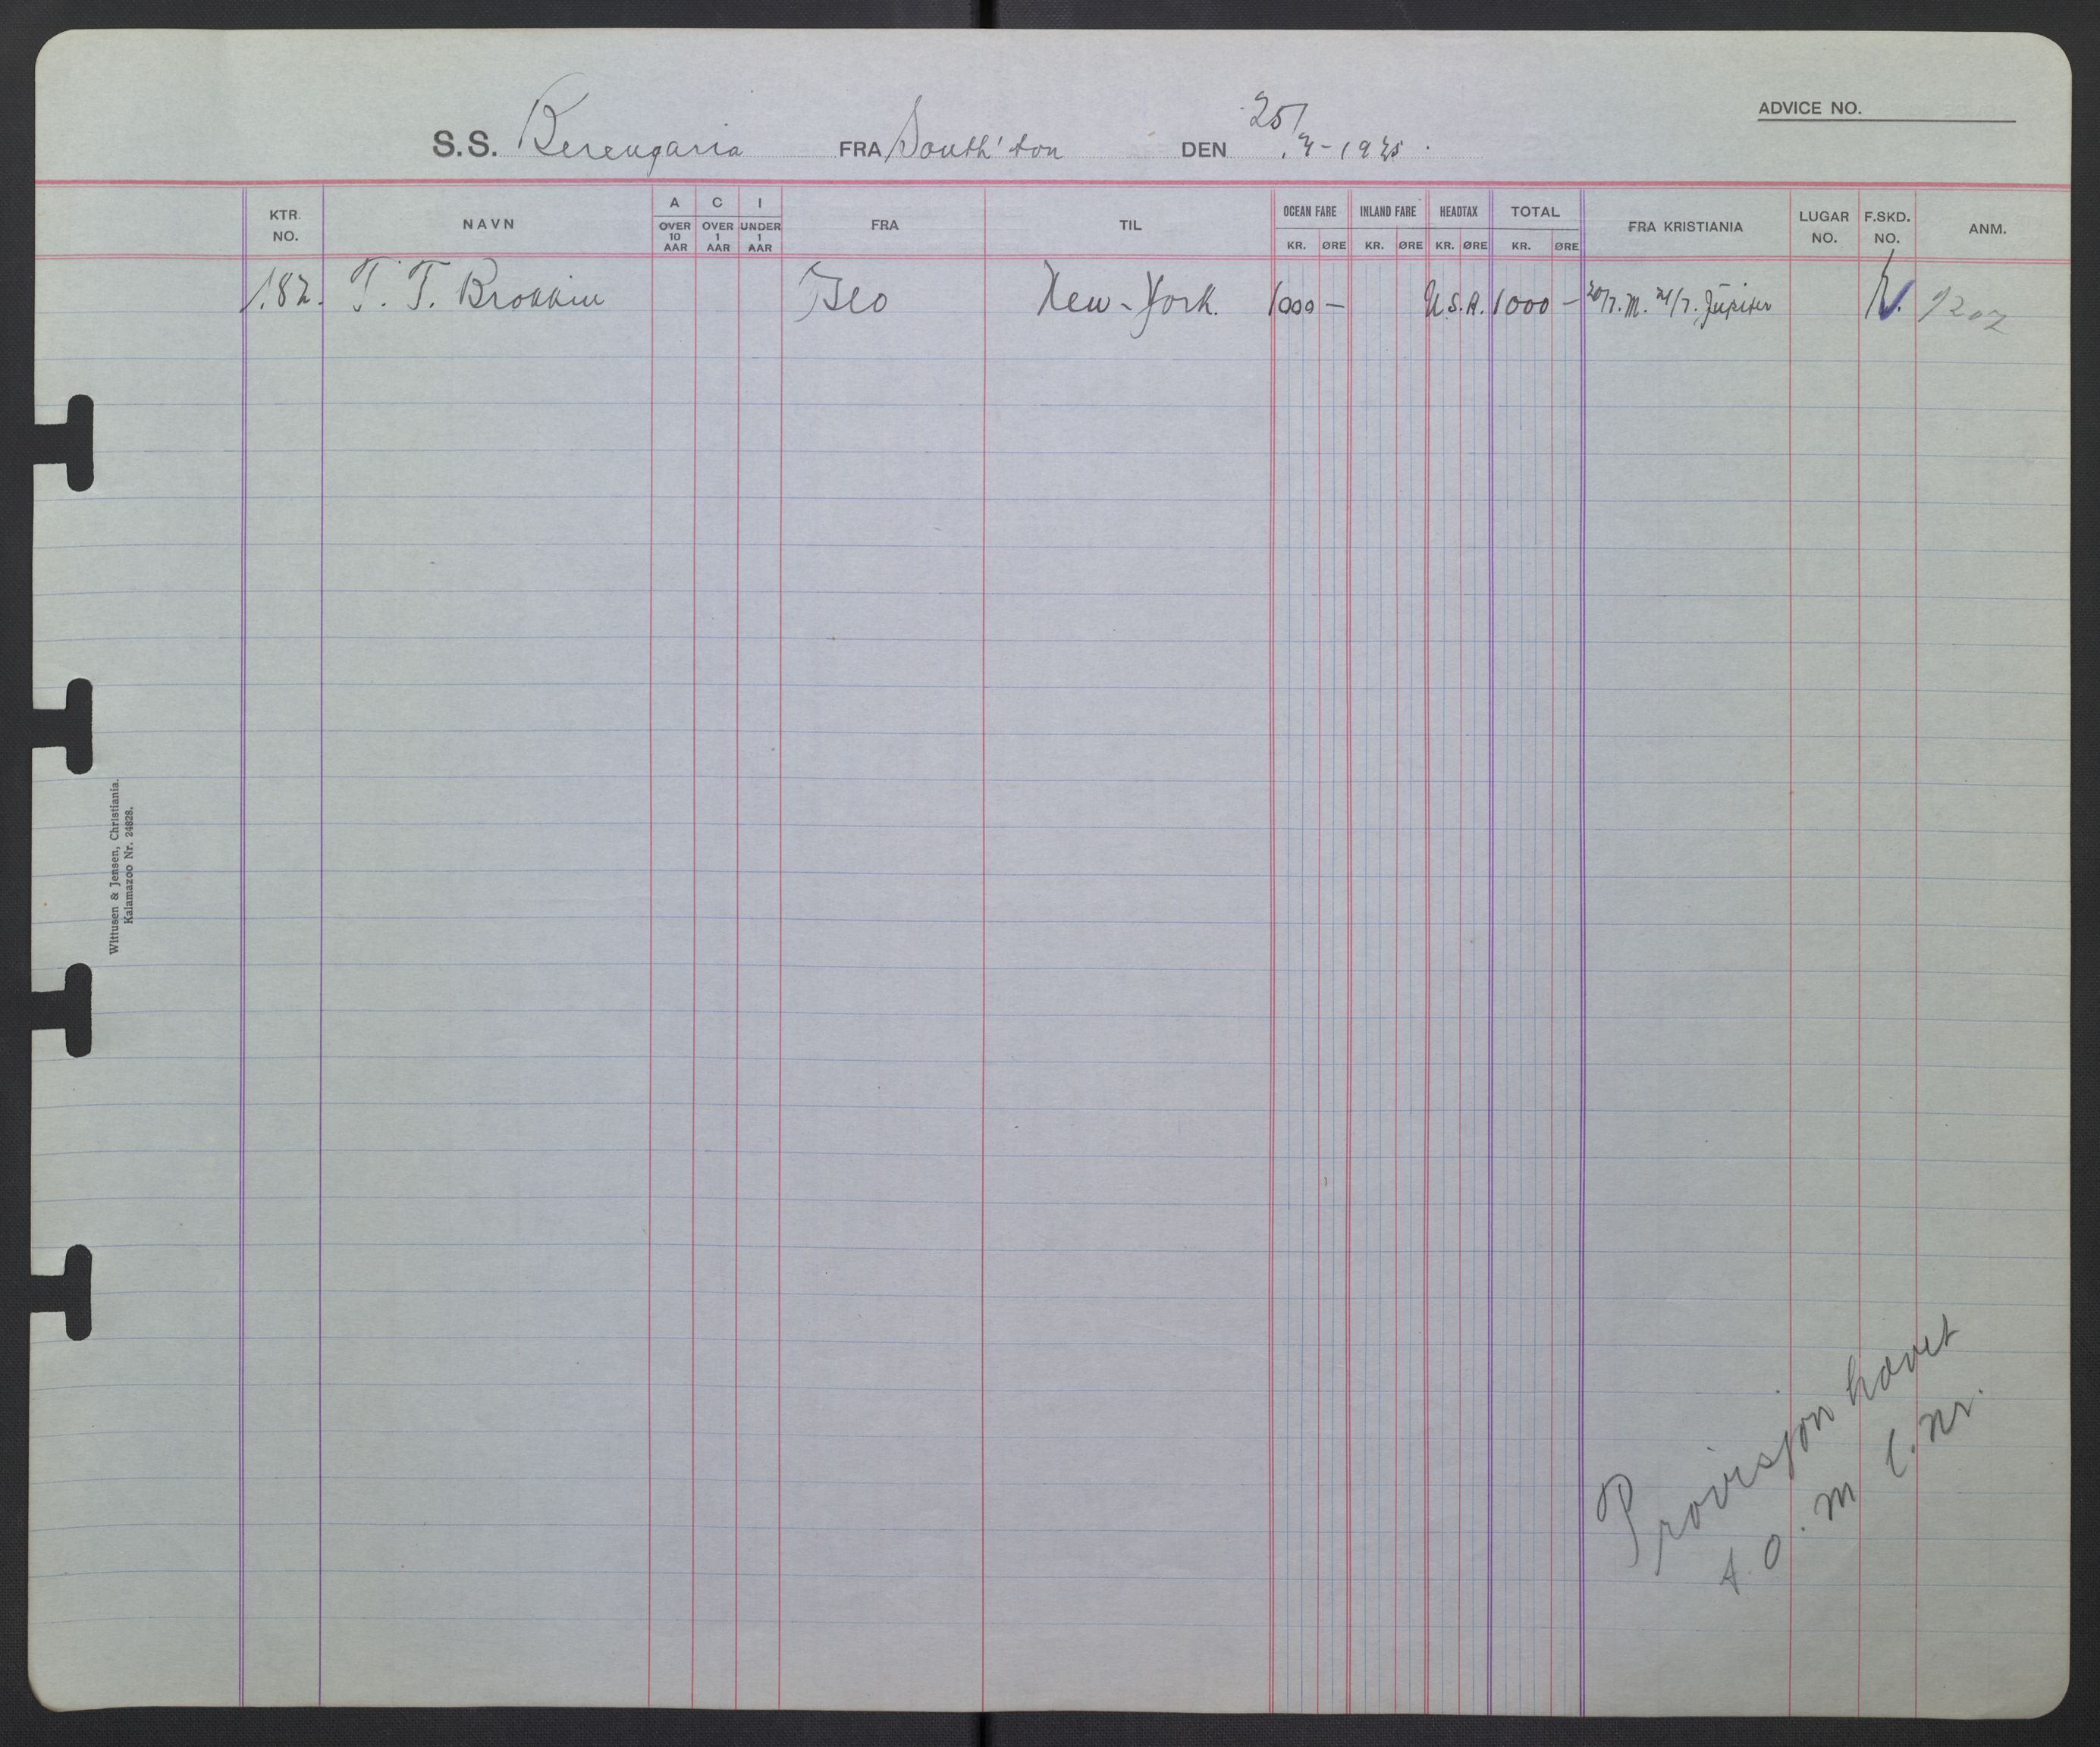 ADVICE NO.
S.S. Berengaria FRA South'ton DEN 25/7-1925.
KTR. NO. NAVN A OVER 10 AAR C OVER 1 AAR I UNDER 1 AAR FRA TIL OCEAN FARE KR. ØRE INLAND FARE KR. ØRE HEADTAX KR. ØRE TOTAL KR. ØRE FRA KRISTIANIA LUGAR NO. F.SKD. NO. ANM.
182. T. T. Brokkin New-York. 1000 — U.S.A. 1000 — 20/7. M. 21/7. Jūpiter 1202
Wittusen & Jensen, Christiania.
Kalamazoo Nr. 24828.
Provisjon hævet
t.o.m l.nr.